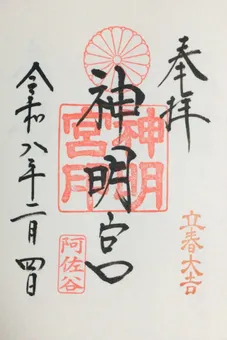 奉拝
立春大吉
神明宮
神明宮印
阿佐谷
令和八年二月四日